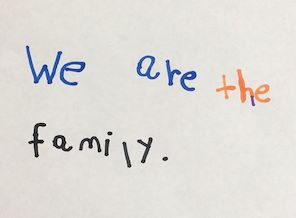 We are the
family.